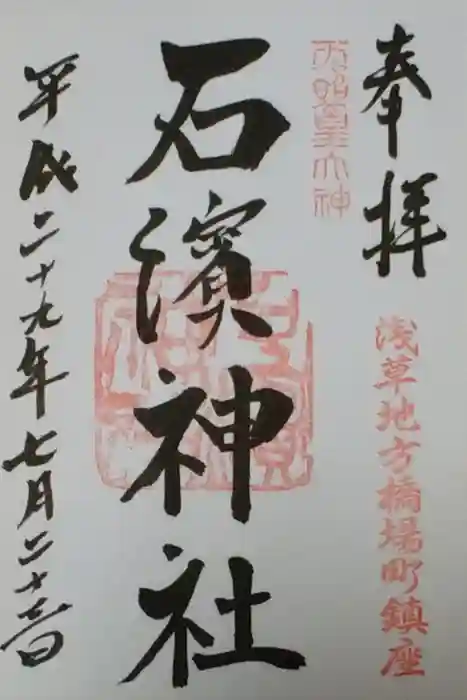 奉拝
浅草地方橋場町鎮座
天照皇大神
石濱神社
平成二十九年七月二十三日